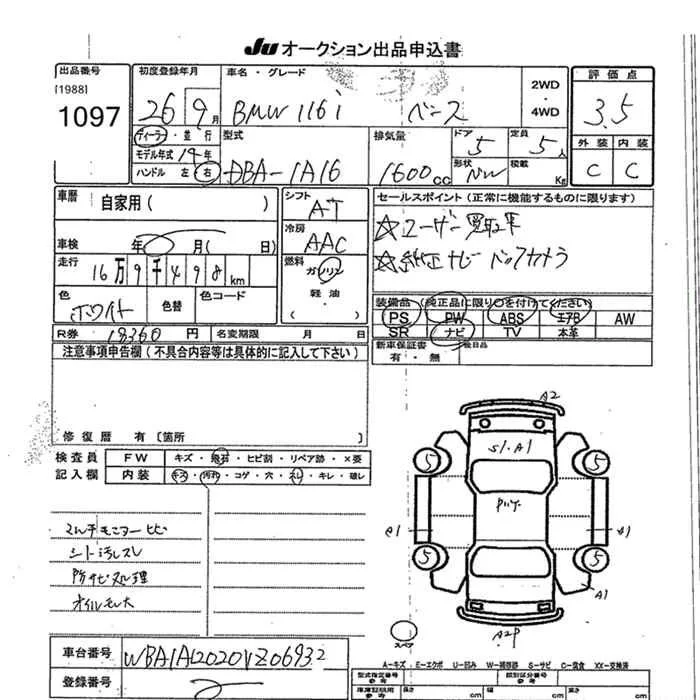 JU オークション出品申込書
出品番号 初度登録年月 車名・グレード 2WD・4WD 評価点
[1988]
1097 26 9月 BMW 116i ベース 3.5
ディーラー・並行 型式 排気量 ドア 定員 外装 内装
モデル年式 14年 5 5人
ハンドル 左 右 DBA-1A16 1600cc 形状 積載 Kg C C
車歴 自家用( ) シフト AT セールスポイント(正常に機能するものに限ります)
冷房 AAC ☆ユーザー買取車
車検 年 月( 日) ☆純正ナビ バックカメラ
走行 16万9千498km 燃料 ガソリン
軽油・( )
色 ホワイト 色替 色コード 装備品(純正品に限り○を付けてください)
PS PW ABS エアB AW
R券 18360円 名変期限 月 日 SR ナビ TV 本革
注意事項申告欄(不具合内容等は具体的に記入して下さい) 新車保証書 後日品
有・無
修復歴 有〔箇所
検査員 FW キズ・飛石・ヒビ割・リペア跡・×要
記入欄 内装 キズ・汚れ・コゲ・穴・スレ・キレ・破レ
A2
S1・A1
5 5
A1
5 5
A1
A2P
スペア
マルチモニターヒビ
シート汚レスレ
防サビ処理
オイルモレ大
A-キズ E-エクボ U-凹み W-補修跡 S-サビ C-腐食 XX-交換済
車台番号 WBA1A12020VZ06932
型式指定番号 参考 類別区分番号 参考
登録番号
車庫証明用 参考 長さ cm 幅 cm 高さ cm